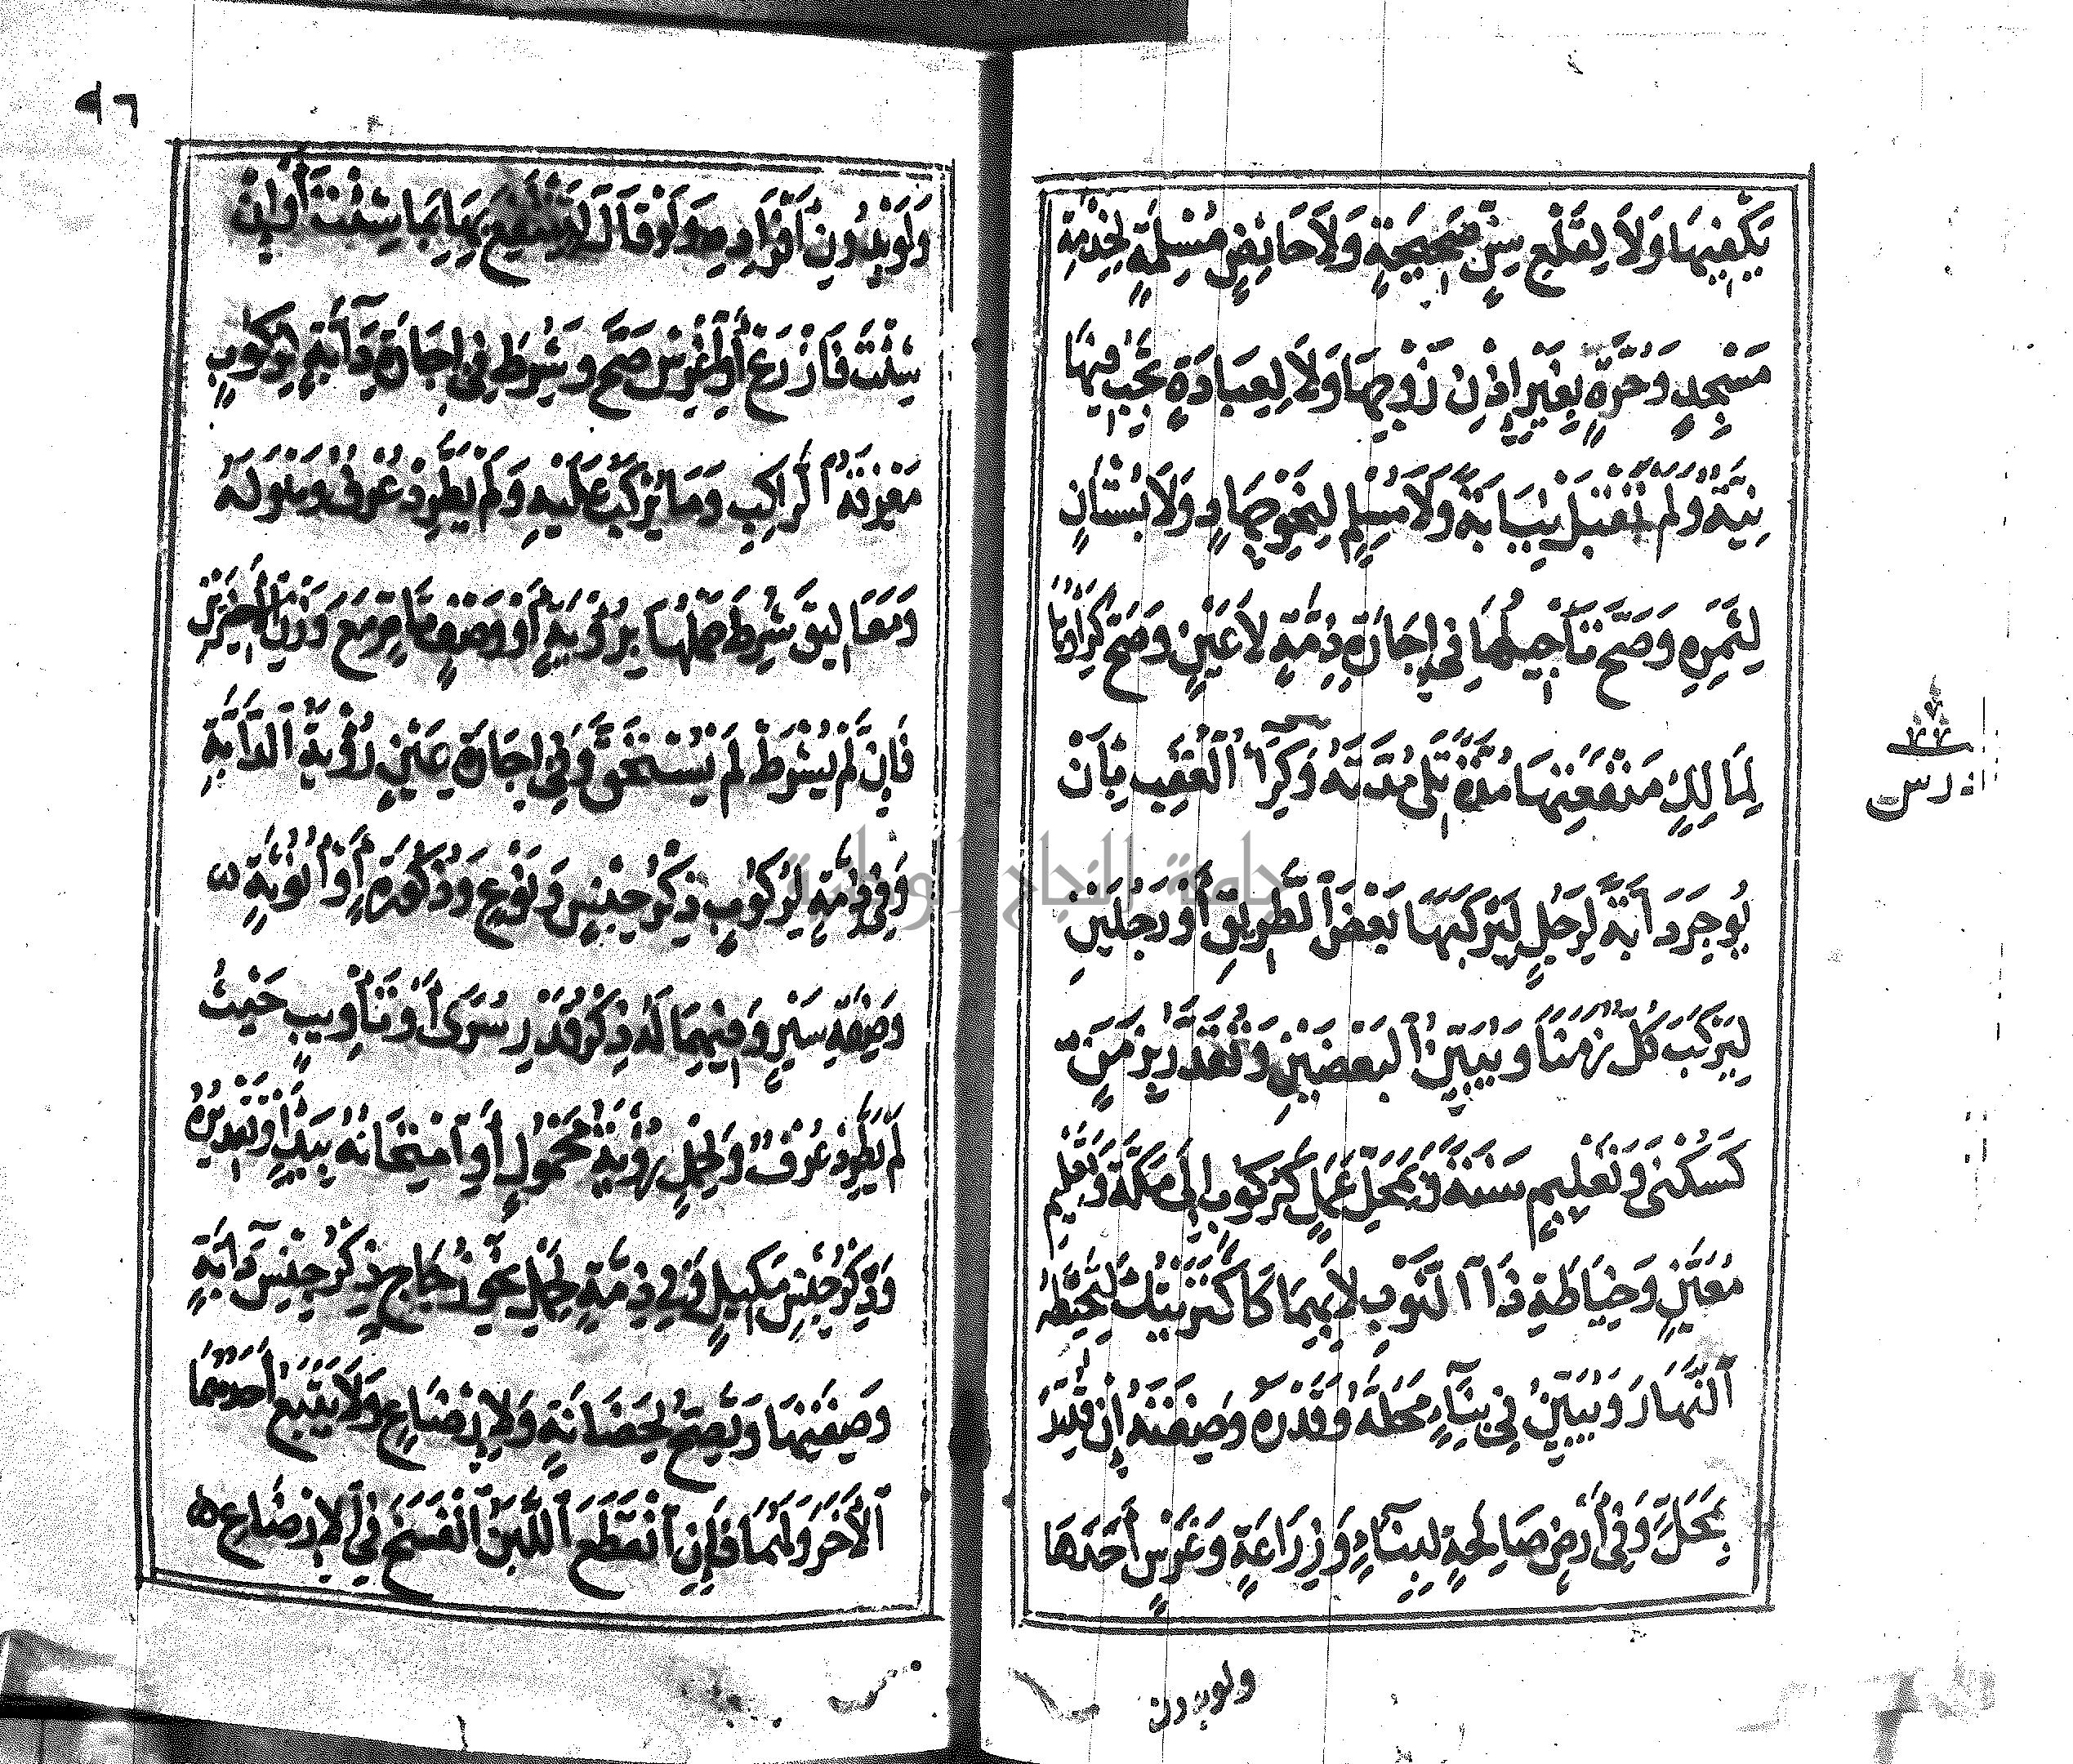 يَكْفِيهَا وَلَا لِقَلْعِ سِنٍّ صَحِيحَةٍ وَلَا حَائِضٍ مُسْلِمَةٍ لِخِدْمَةِ
مَسْجِدٍ وَحُرَّةٍ بِغَيْرِ إِذْنِ زَوْجِهَا وَلَا لِعِبَادَةٍ تَجِبُ فِيهَا
نِيَّةٌ وَلَمْ تَقْبَلْ نِيَابَةً وَلَا مُسْلِمٍ لِنَحْوِ جِهَادٍ وَلَا بُسْتَانٍ
لِثَمَرِهِ وَصَحَّ تَأْجِيلُهَا فِي إِجَارَةِ ذِمَّةٍ لَا عَيْنٍ وَصَحَّ كِرَاؤُهَا
لِمَالِكِ مَنْفَعَتِهَا مُدَّةً تَلِي مُدَّتَهُ وَكِرَاءُ الْعُقَبِ بِأَنْ
يُوجِرَ دَابَّةً لِرَجُلٍ لِيَرْكَبَهَا بَعْضَ الطَّرِيقِ أَوْ رَجُلَيْنِ
لِيَرْكَبَ كُلٌّ زَمَنًا وَيُبَيِّنُ الْبَعْضَيْنِ وَتُقَدَّرُ بِزَمَنٍ
كَسُكْنَى وَتَعْلِيمٍ سَنَةً وَبِمَحَلِّ عَمَلٍ كَرُكُوبٍ إِلَى مَكَّةَ وَتَعْلِيمِ
مُعَيَّنٍ وَخِيَاطَةِ ذَا الثَّوْبِ لَا بِهِمَا كَاكْتَرَيْتُكَ لِتَخِيطَهُ
النَّهَارَ وَيُبَيِّنُ فِي بِنَاءٍ مَحَلَّهُ وَقَدْرَهُ وَصِفَتَهُ إِنْ قُدِّرَ
بِمَحَلٍّ وَفِي أَرْضٍ صَالِحَةٍ لِبِنَاءٍ وَزِرَاعَةٍ وَغَرْسٍ أَحَدَهَا
ولو بدون
درس
٩٦
وَلَوْ بِدُونِ أَفْرَادِهِ وَلَوْ قَالَ لِتَنْتَفِعَ بِهَا بِمَا شِئْتَ أَوْ إِنْ
شِئْتَ فَازْرَعْ أَوِ اغْرِسْ صَحَّ وَشُرِطَ فِي إِجَارَةِ دَابَّةٍ لِرُكُوبٍ
مَعْرِفَةُ الرَّاكِبِ وَمَا يَرْكَبُ عَلَيْهِ وَلَمْ يَطَّرِدْ عُرْفٌ وَهُوَ لَهُ
وَمَعَالِيقَ شُرِطَ حَمْلُهَا بِرُؤْيَةٍ أَوْ وَصْفٍ تَامٍّ مَعَ وَزْنِ الْأَخِيرَيْنِ
فَإِنْ لَمْ يُشْرَطْ لَمْ يُسْتَحَقَّ وَفِي إِجَارَةِ عَيْنٍ رُؤْيَةُ الدَّابَّةِ
وَفِي ذِمَّةٍ لِرُكُوبٍ ذِكْرُ جِنْسٍ وَنَوْعٍ وَذُكُورَةٍ أَوْ أُنُوثَةٍ
وَصِفَةِ سَيْرٍ وَفِيهِمَا لَهُ ذِكْرُ قَدْرِ سُرًى أَوْ تَأْوِيبٍ حَيْثُ
لَمْ يَطَّرِدْ عُرْفٌ وَلِحَمْلٍ رُؤْيَةُ مَحْمُولٍ أَوِ امْتِحَانُهُ بِيَدٍ أَوْ تَقْدِيرُهُ
وَذِكْرُ جِنْسِ مَكِيلٍ وَفِي ذِمَّةٍ لِحَمْلِ نَحْوِ زُجَاجٍ ذِكْرُ جِنْسِ دَابَّةٍ
وَصِفَتِهَا وَتَصِحُّ لِحَضَانَةٍ وَلِإِرْضَاعٍ وَلَا يَتْبَعُ أَحَدُهُمَا
الْآخَرَ وَلَهُمَا فَإِنِ انْقَطَعَ اللَّبَنُ انْفَسَخَ فِي الْإِرْضَاعِ
جامعة النجاح الوطنية